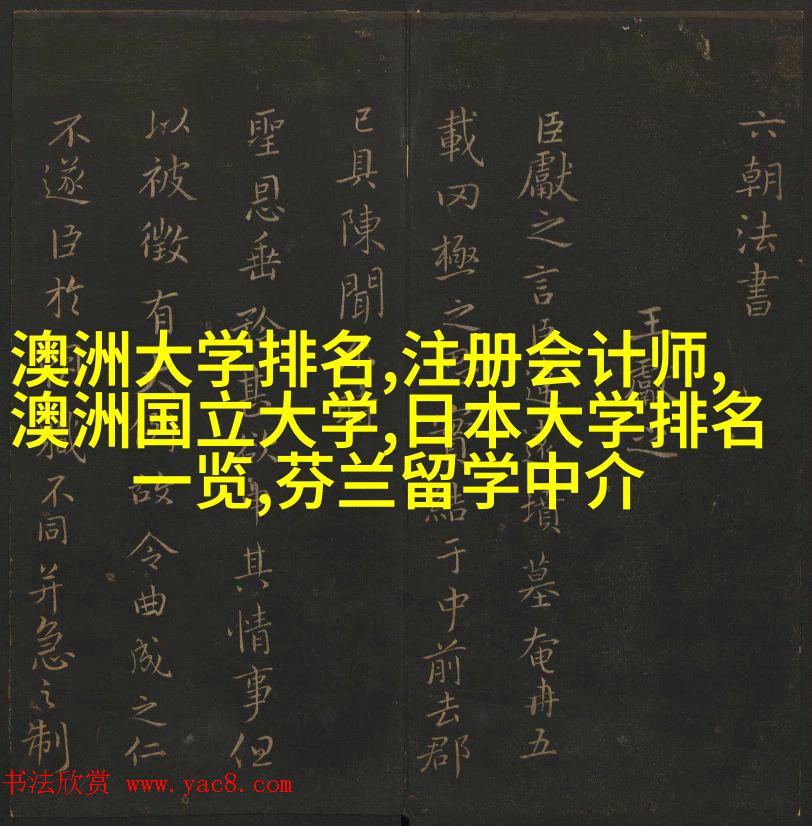 六朝法書
王獻之
臣獻之言臣違遠墳墓奄冉五
載罔極之于中前去郡
已具陳聞
聖恩垂矜其情事但
以被徵有故令曲成之仁
不遂臣於職不同并急之制
澳洲大学排名,注册会计师,
澳洲国立大学,日本大学排名
一览,芬兰留学中介
书法欣赏 www.yac8.com